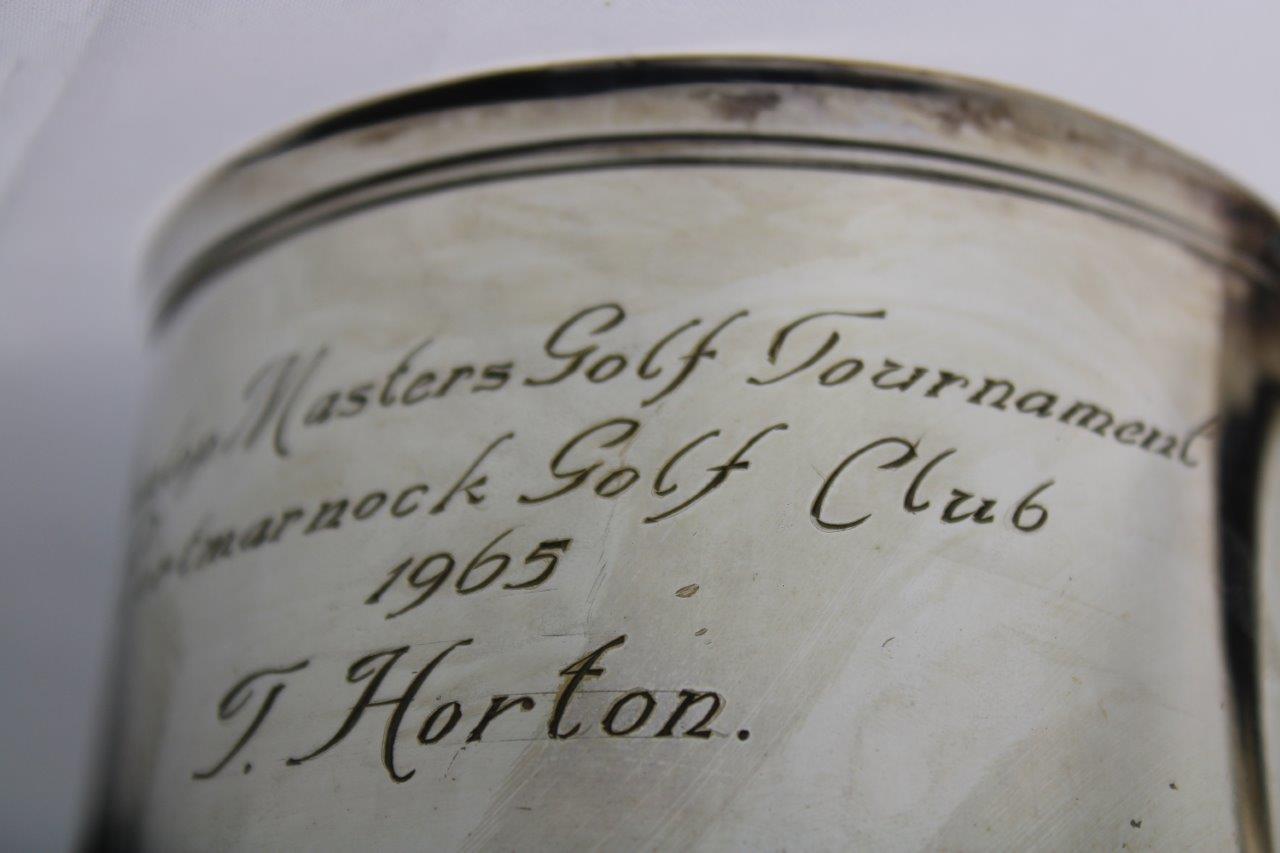 Masters Golf Tournament
Portmarnock Golf Club
1965
T. Horton.